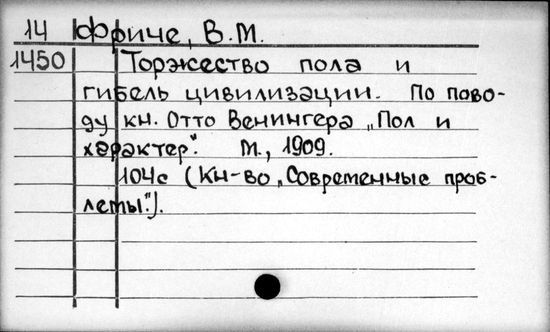 14 Фриче, В.М.
1450 Торжество пола и
гибель цивилизации. По пово-
ду кн. Отто Венингера „Пол и
характер". М., 1909.
104с (Кн-во „Современные проб-
лемы").